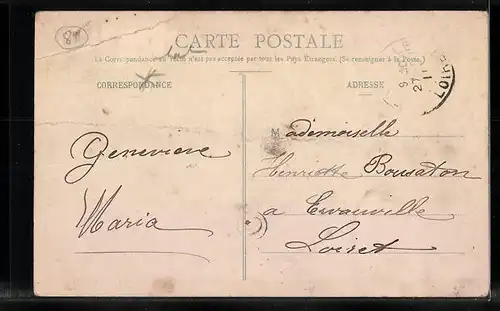 84
CARTE POSTALE
La Correspondance au recto n'est pas acceptée par tous les Pays Étrangers. (Se renseigner à la Poste)
CORRESPONDANCE
ADRESSE
27
11
LOIRET
Mademoiselle
Geneviève
Henriette Bousaton
Maria
a Ervauville
Loiret